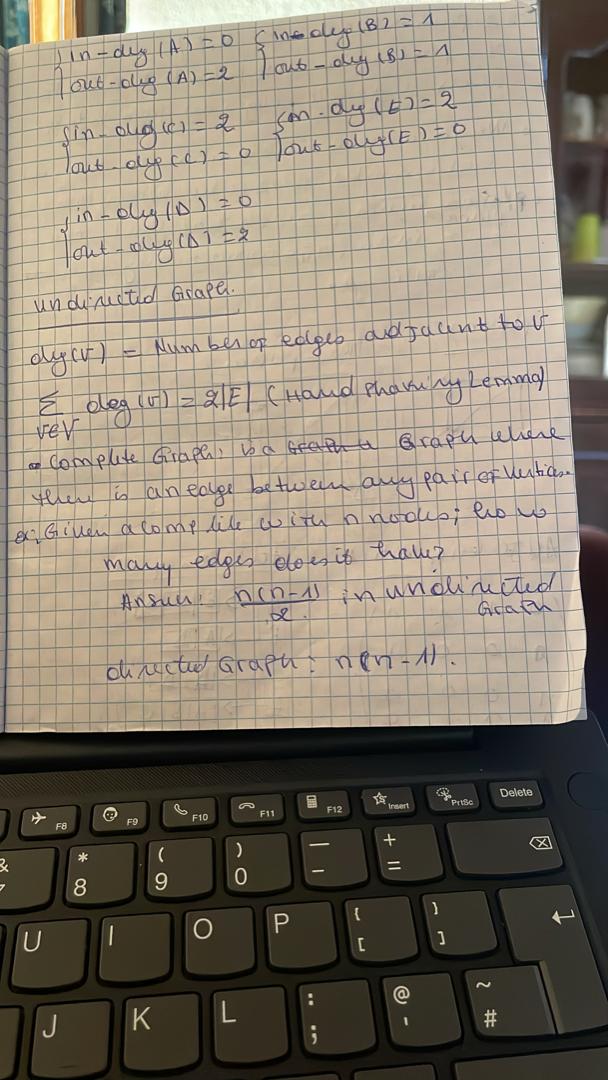 { in-deg(A) = 0 { in-deg(B) = 1
out-deg(A) = 2 out-deg(B) = 1
{ in-deg(C) = 2 { in-deg(E) = 2
out-deg(C) = 0 out-deg(E) = 0
{ in-deg(D) = 0
out-deg(D) = 2
undirected Graph.
deg(v) = Number of edges adjacent to v
∑ deg(v) = 2|E| (Hand Lemma)
v∈V
Complete Graph: is a Graph where
there is an edge between any pair of vertices.
ex: Given a with n nodes; how
many edges does it have?
Answer: n(n-1)/2 in undirected
Graph
directed Graph: n(n-1).
F8 F9 F10 F11 F12 Insert PrtSc Delete
& 7 * 8 ( 9 ) 0 — - + =
U I O P { [ } ]
J K L : ; @ ' ~ #